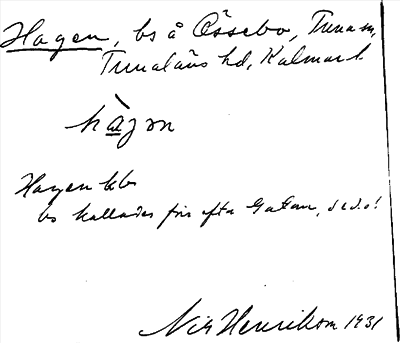 Hagen, bs å Össebo, Tuna sn,
Tunaläns hd, Kalmar l.
hàgɔn
Hagen kbs
bs kallades förr efter Gatan, se d.o!
Nils Henrikson 1931